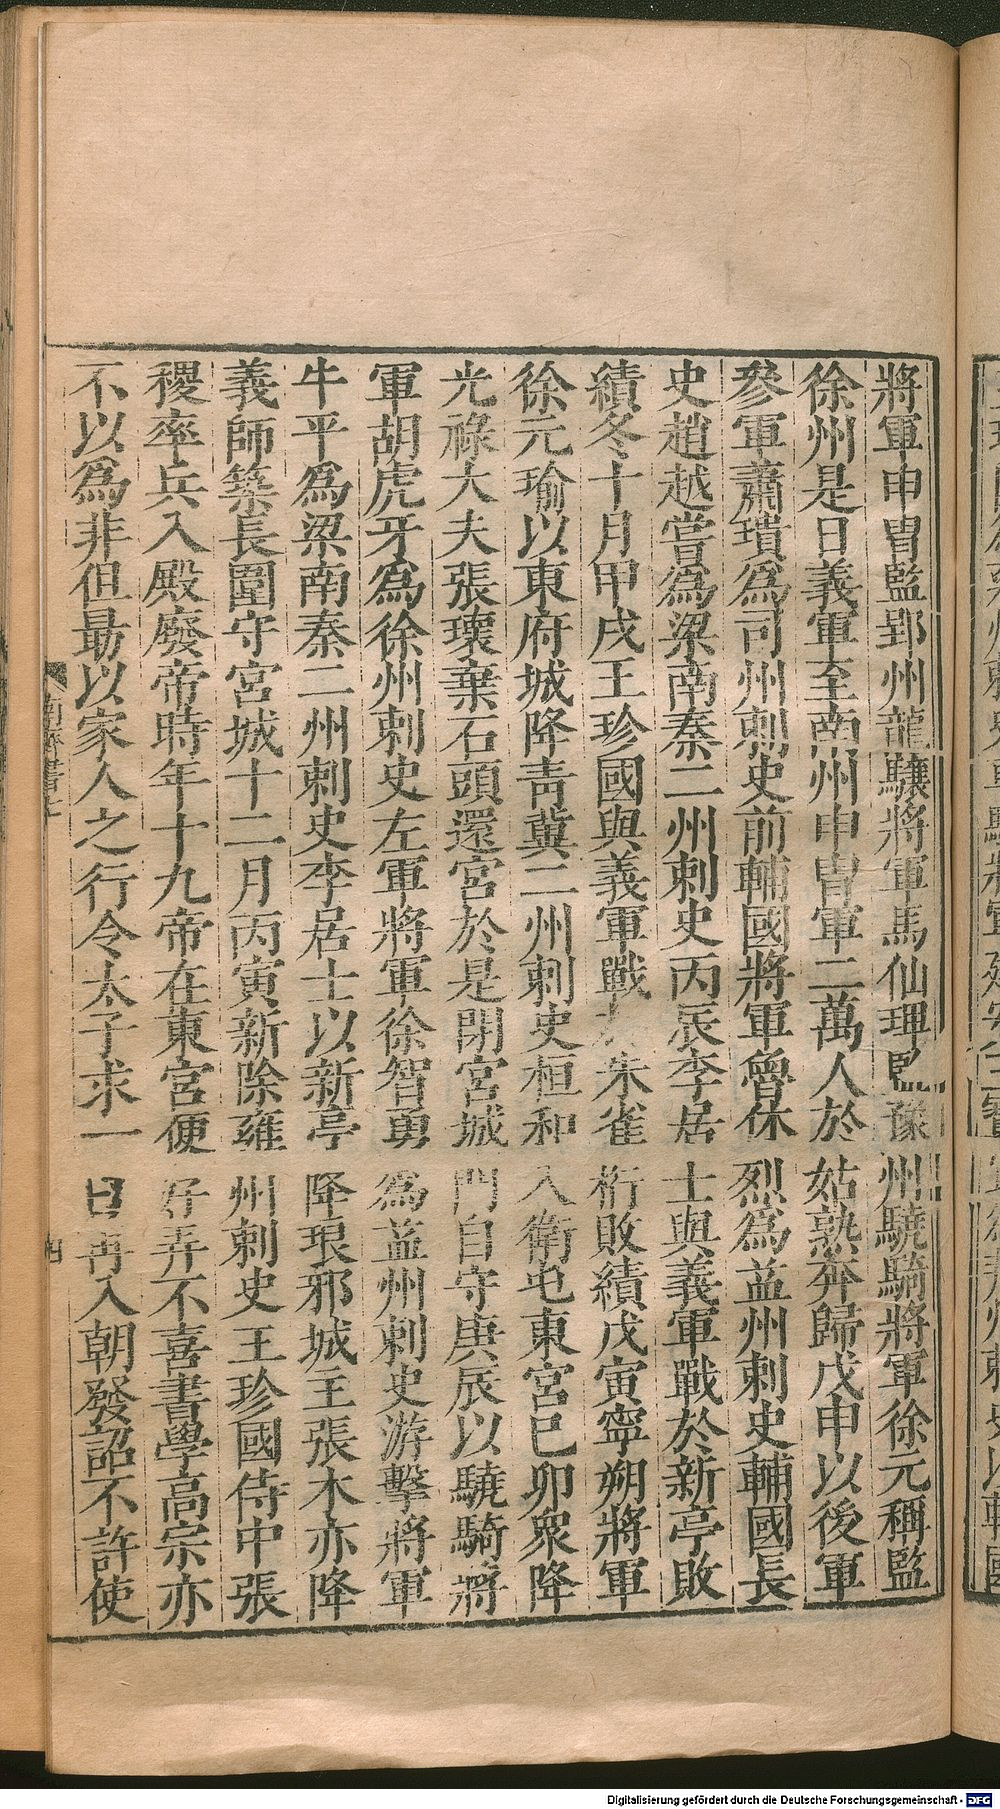 將軍申冑監郢州龍驤將軍馬仙琕監豫州驍騎將軍徐元稱監
徐州是日義軍至南州申冑軍二萬人於姑熟奔歸戊申以後軍
參軍蕭璝爲司州刺史前輔國將軍魯休烈爲益州刺史輔國長
史趙越嘗爲梁南秦二州刺史丙辰李居士與義軍戰於新亭敗
績冬十月甲戌王珍國與義軍戰於朱雀桁敗績戊寅寧朔將軍
徐元瑜以東府城降靑冀二州刺史桓和入衛屯東宮巳卯衆降
光祿大夫張瓌棄石頭還宮於是閉宮城門自守庚辰以驍騎將
軍胡虎牙爲徐州刺史左軍將軍徐智勇爲益州刺史游擊將軍
牛平爲梁南秦二州刺史李居士以新亭降琅邪城主張木亦降
義師築長圍守宮城十二月丙寅新除雍州刺史王珍國侍中張
稷率兵入殿廢帝時年十九帝在東宮便好弄不喜書學高宗亦
不以爲非但勗以家人之行令太子求一日再入朝發詔不許使
南齊書七
四
Digitalisierung gefördert durch die Deutsche Forschungsgemeinschaft - DFG